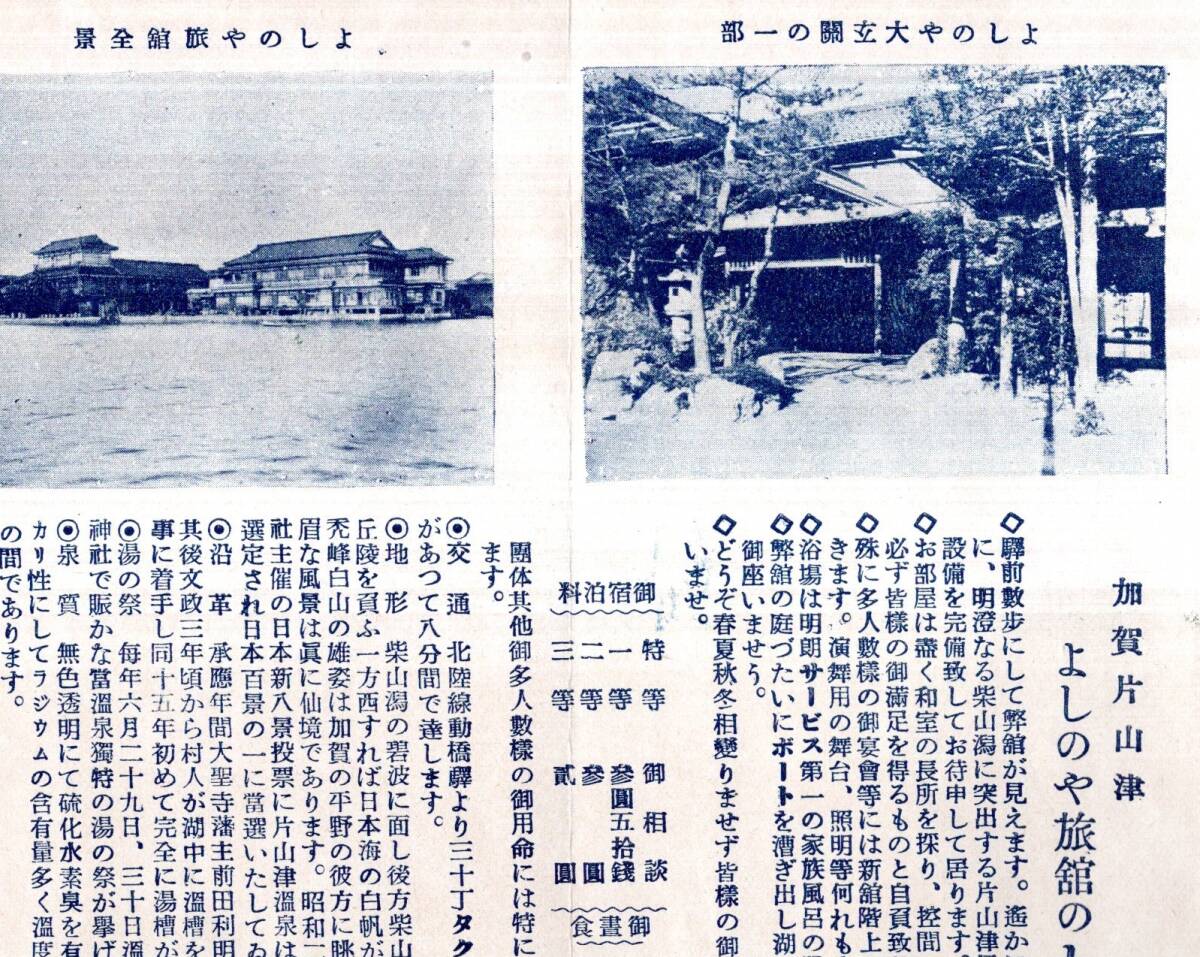 よしのや大玄關の一部
よしのや旅舘全景
加賀片山津
よしのや旅舘の
◇驛前數步にして弊舘が見えます。遙か
に、明澄なる柴山潟に突出する片山津
設備を完備致してお待申して居ります。
◇お部屋は盡く和室の長所を採り、控間
必ず皆樣の御滿足を得るものと自負致
◇殊に多人數樣の御宴會等には新舘階上
きます。演舞用の舞台、照明等何れも
◇浴場は明朗サービス第一の家族風呂の
◇弊舘の庭づたいにボートを漕ぎ出し湖
御座いませう。
◇どうぞ春夏秋冬相變りませず皆樣の御
いませ。
御宿泊料
特等 御相談
一等 參圓五拾錢
二等 參圓
三等 貳圓
御晝食
團体其他御多人數樣の御用命には特に
ます。
◉交通 北陸線動橋驛より三十丁タク
があつて八分間で達します。
◉地形 柴山潟の碧波に面し後方柴山
丘陵を負ふ一方西すれば日本海の白帆が
禿峰白山の雄姿は加賀の平野の彼方に眺
眉な風景は眞に仙境であります。昭和二
社主催の日本新八景投票に片山津溫泉は
選定され日本百景の一に當選いたしてゐ
◉沿革 承應年間大聖寺藩主前田利明
其後文政三年頃から村人が湖中に溫槽を
事に着手し同十五年初めて完全に湯槽が
◉湯の祭 每年六月二十九日、三十日溫
神社で賑かな當溫泉獨特の湯の祭が擧げ
◉泉質 無色透明にて硫化水素臭を有
カリ性にしてラジウムの含有量多く溫度
の間であります。